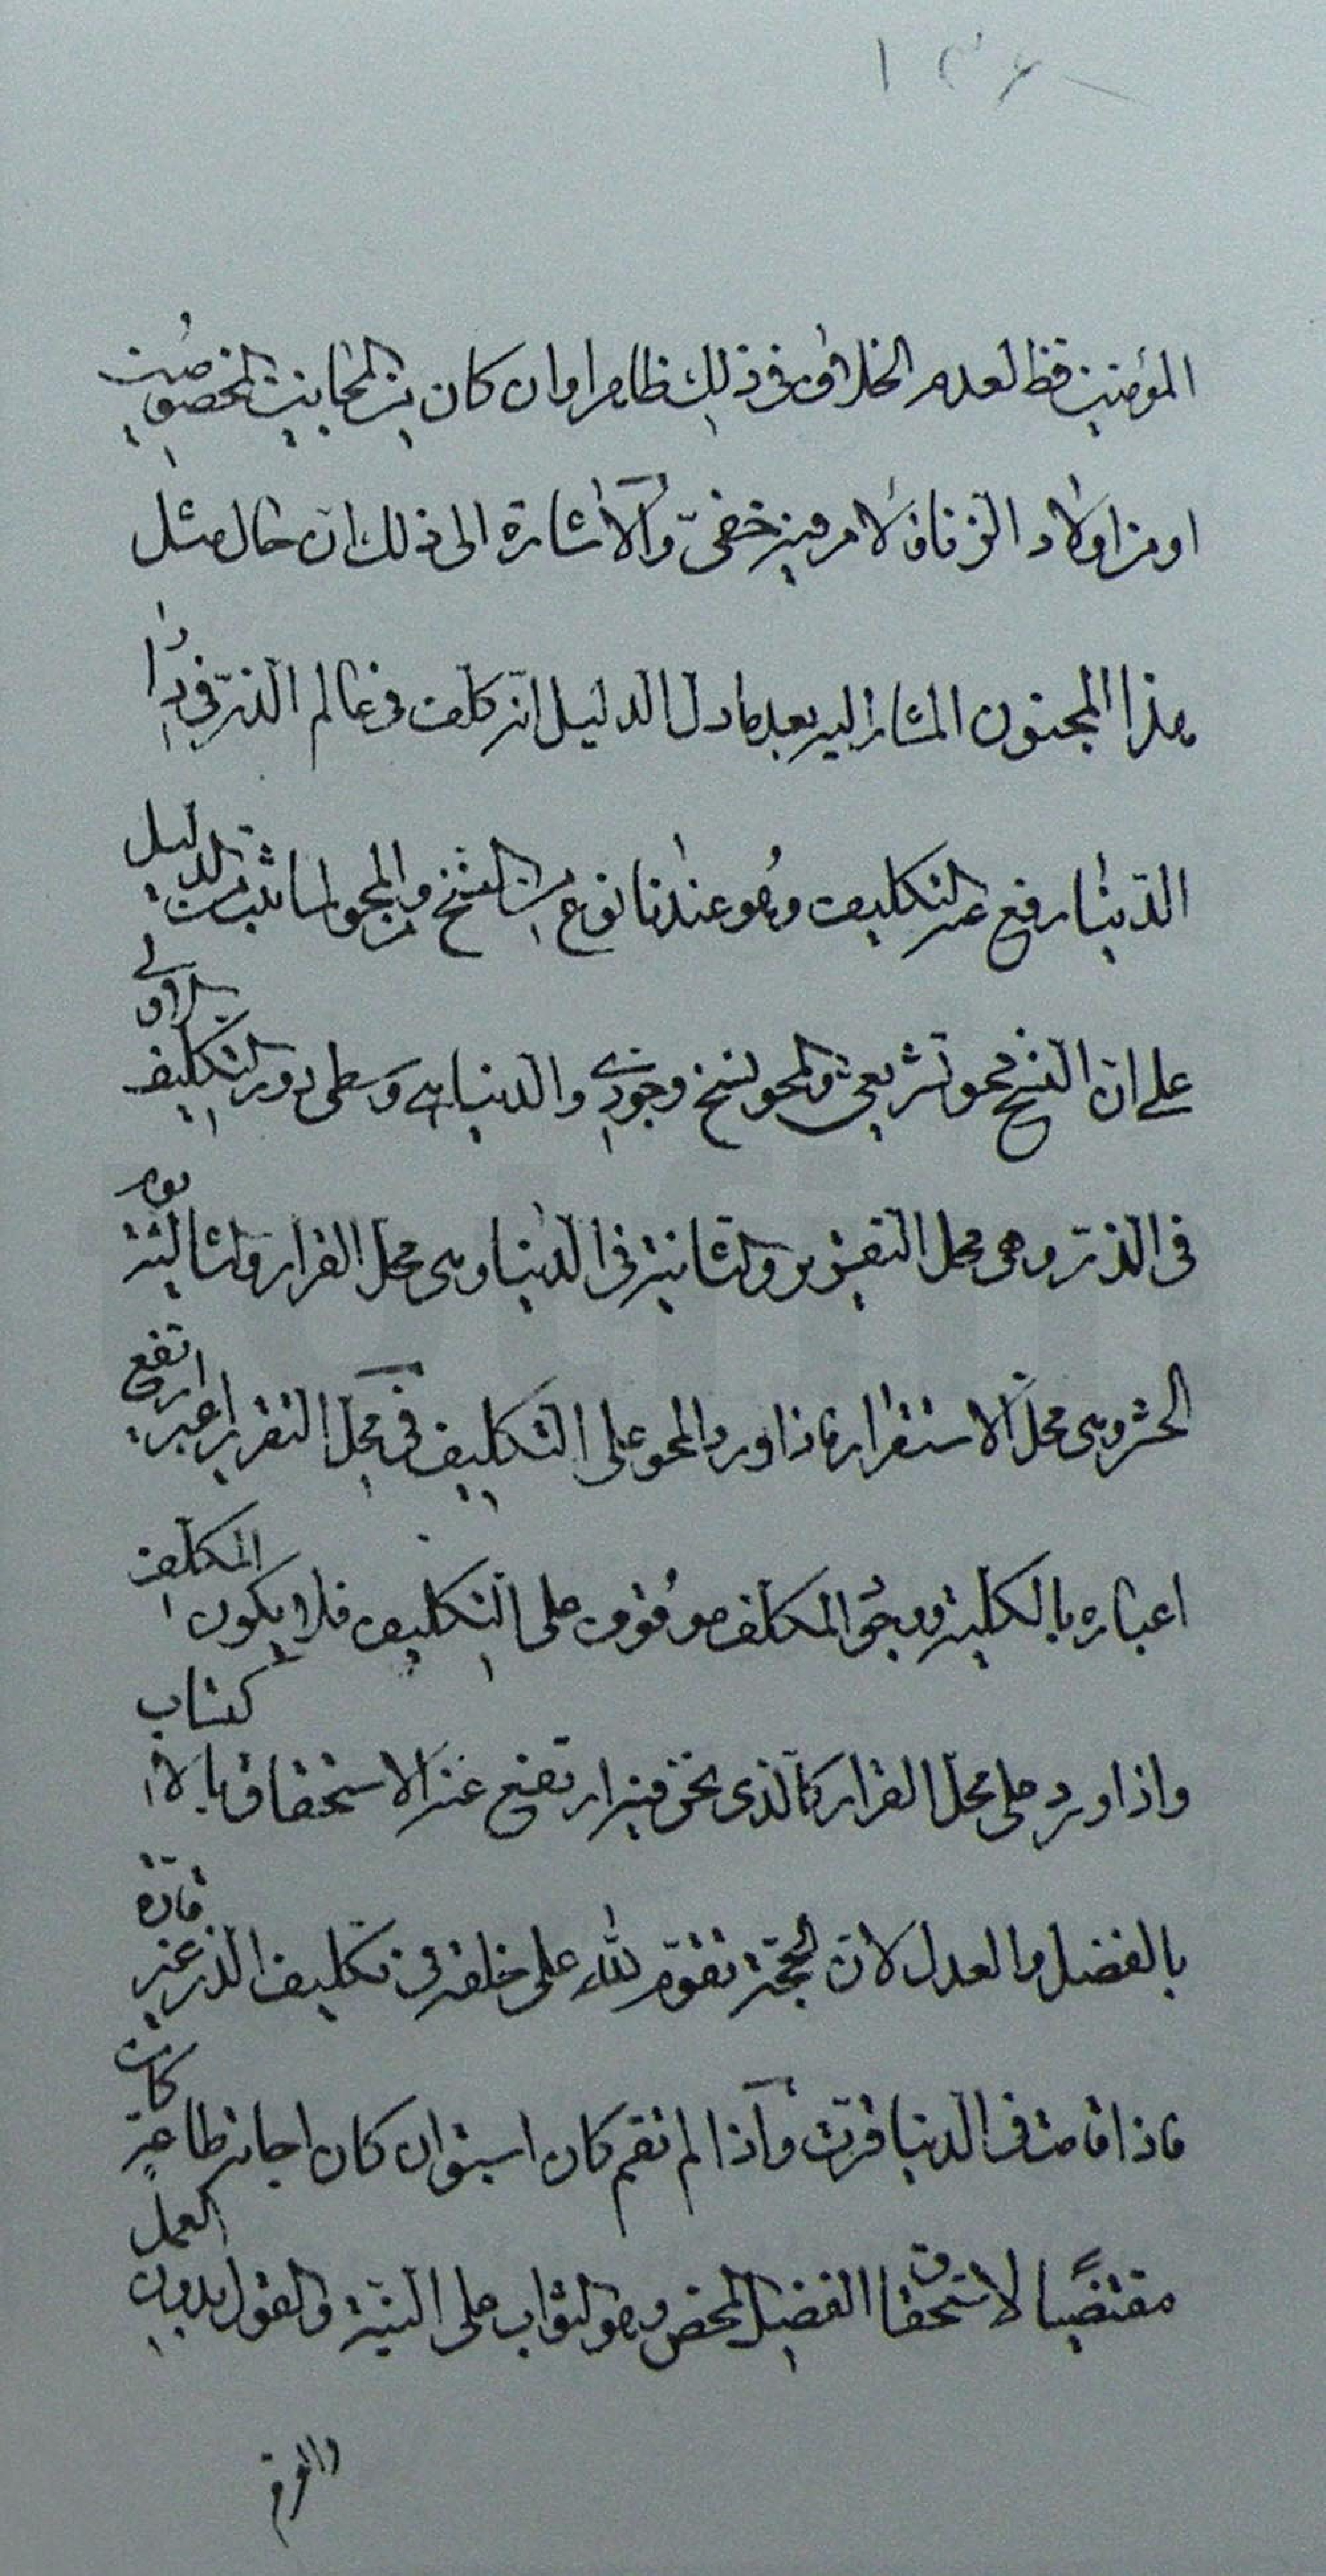 المؤمنين فظ لعدم الخلاف في ذلك ظاهرا وان كان من المجانين المخصوصين
او من اولاد الزنا فالامر فيه خفىّ والاشارة الى ذلك ان حال مثل
هذا المجنون المشار اليه بعد ما دل الدليل انه كلف فى عالم الذرّ فى دار
الدّنيا رفع عنه التكليف وهو عندنا نوع من النسخ والمحو لما ثبت من الدليل
على ان النسخ محو تشريعى والمحو نسخ وجودى والدنيا هى وسطى دور التكليف الاولى
فى الذر وهى محل التقرير والثانية فى الدنيا وهى محل القرار والثالثة يوم
الحشر وهى محل الاستقرار فاذا ورد المحو على التكليف فى محل التقرير اعنى ارتفع
اعتباره بالكلية ووجود المكلف موقوف على التكليف فلا يكون المكلف
واذا ورد على محل القرار كالذى نحن فيه ارتفع عنه الاستحقاق بالاكتساب
بالفضل والعدل لان الحجة تقوم لله على خلقه فى تكليف الذر غير قارة
فاذا قامت فى الدنيا قرت واذا لم تقم كان اسبق ان كان اجابة طاعة كان
مقتضيا لاستحقاق الفضل المحض وهو الثواب على النية والقول بدون العمل